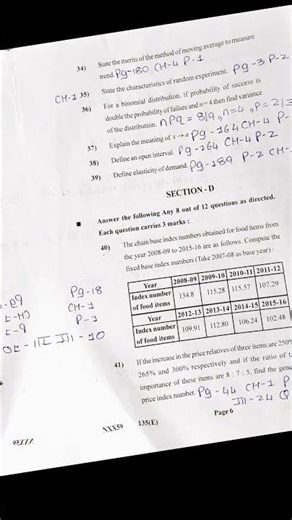 34) State the merits of the method of moving average to measure
trend. Pg-180 CH-4 P-1
CH-1 35) State the characteristics of random experiment. Pg-3 P-2
36) For a binomial distribution, if probability of success is
double the probability of failure and n = 4 then find variance
of the distribution. npq = 8/9, n=4, p = 2/3
37) Explain the meaning of x → a Pg-164 CH-4 P-
38) Define an open interval. Pg-164 CH-4 P-2
39) Define elasticity of demand. Pg-189 P-2 CH-
SECTION - D
■ Answer the following Any 8 out of 12 questions as directed.
Each question carries 3 marks :
40) The chain base index numbers obtained for food items from
the year 2008-09 to 2015-16 are as follows. Compute the
fixed base index numbers (Take 2007-08 as base year) :
Year 2008-09 2009-10 2010-11 2011-12
Index number of food items 134.8 115.28 115.57 107.29
Year 2012-13 2013-14 2014-15 2015-16
Index number of food items 109.91 112.80 106.24 102.48
Pg-18
CH-1
P-1
III - 10
41) If the increase in the price relatives of three items are 250%
265% and 300% respectively and if the ratio of t
importance of these items are 8 : 7 : 5, find the gene
price index number. Pg-44 CH-1 P
III-24 Q
NXX59 135(E) Page 6